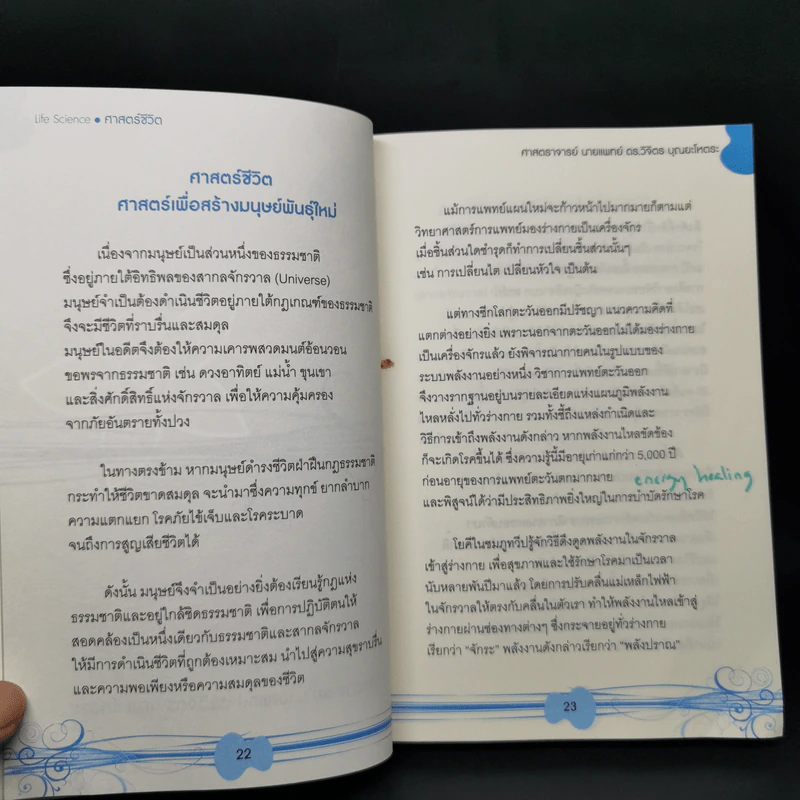 Life Science • ศาสตร์ชีวิต
ศาสตร์ชีวิต
ศาสตร์เพื่อสร้างมนุษย์พันธุ์ใหม่
เนื่องจากมนุษย์เป็นส่วนหนึ่งของธรรมชาติ
ซึ่งอยู่ภายใต้อิทธิพลของสากลจักรวาล (Universe)
มนุษย์จำเป็นต้องดำเนินชีวิตอยู่ภายใต้กฎเกณฑ์ของธรรมชาติ
จึงจะมีชีวิตที่ราบรื่นและสมดุล
มนุษย์ในอดีตจึงต้องให้ความเคารพสวดมนต์อ้อนวอน
ขอพรจากธรรมชาติ เช่น ดวงอาทิตย์ แม่น้ำ ขุนเขา
และสิ่งศักดิ์สิทธิ์แห่งจักรวาล เพื่อให้ความคุ้มครอง
จากภัยอันตรายทั้งปวง
ในทางตรงข้าม หากมนุษย์ดำรงชีวิตฝ่าฝืนกฎธรรมชาติ
กระทำให้ชีวิตขาดสมดุล จะนำมาซึ่งความทุกข์ ยากลำบาก
ความแตกแยก โรคภัยไข้เจ็บและโรคระบาด
จนถึงการสูญเสียชีวิตได้
ดังนั้น มนุษย์จึงจำเป็นอย่างยิ่งต้องเรียนรู้กฎแห่ง
ธรรมชาติและอยู่ใกล้ชิดธรรมชาติ เพื่อการปฏิบัติตนให้
สอดคล้องเป็นหนึ่งเดียวกับธรรมชาติและสากลจักรวาล
ให้มีการดำเนินชีวิตที่ถูกต้องเหมาะสม นำไปสู่ความสุขราบรื่น
และความพอเพียงหรือความสมดุลของชีวิต
22
ศาสตราจารย์ นายแพทย์ ดร.วิจิตร บุณยะโหตระ
แม้การแพทย์แผนใหม่จะก้าวหน้าไปมากมายก็ตามแต่
วิทยาศาสตร์การแพทย์มองร่างกายเป็นเครื่องจักร
เมื่อชิ้นส่วนใดชำรุดก็ทำการเปลี่ยนชิ้นส่วนนั้นๆ
เช่น การเปลี่ยนไต เปลี่ยนหัวใจ เป็นต้น
แต่ทางซีกโลกตะวันออกมีปรัชญา แนวความคิดที่
แตกต่างอย่างยิ่ง เพราะนอกจากตะวันออกไม่ได้มองร่างกาย
เป็นเครื่องจักรแล้ว ยังพิจารณากายคนในรูปแบบของ
ระบบพลังงานอย่างหนึ่ง วิชาการแพทย์ตะวันออก
จึงวางรากฐานอยู่บนรายละเอียดแห่งแผนภูมิพลังงาน
ไหลหลั่งไปทั่วร่างกาย รวมทั้งชี้ถึงแหล่งกำเนิดและ
วิธีการเข้าถึงพลังงานดังกล่าว หากพลังงานไหลขัดข้อง
ก็จะเกิดโรคขึ้นได้ ซึ่งความรู้นี้มีอายุเก่าแก่กว่า 5,000 ปี
ก่อนอายุของการแพทย์ตะวันตกมากมาย energy healing
และพิสูจน์ได้ว่ามีประสิทธิภาพยิ่งใหญ่ในการบำบัดรักษาโรค
โยคีในชมภูทวีปรู้จักวิธีดึงดูดพลังงานในจักรวาล
เข้าสู่ร่างกาย เพื่อสุขภาพและใช้รักษาโรคมาเป็นเวลา
นับหลายพันปีมาแล้ว โดยการปรับคลื่นแม่เหล็กไฟฟ้า
ในจักรวาลให้ตรงกับคลื่นในตัวเรา ทำให้พลังงานไหลเข้าสู่
ร่างกายผ่านช่องทางต่างๆ ซึ่งกระจายอยู่ทั่วร่างกาย
เรียกว่า "จักระ" พลังงานดังกล่าวเรียกว่า "พลังปราณ"
23